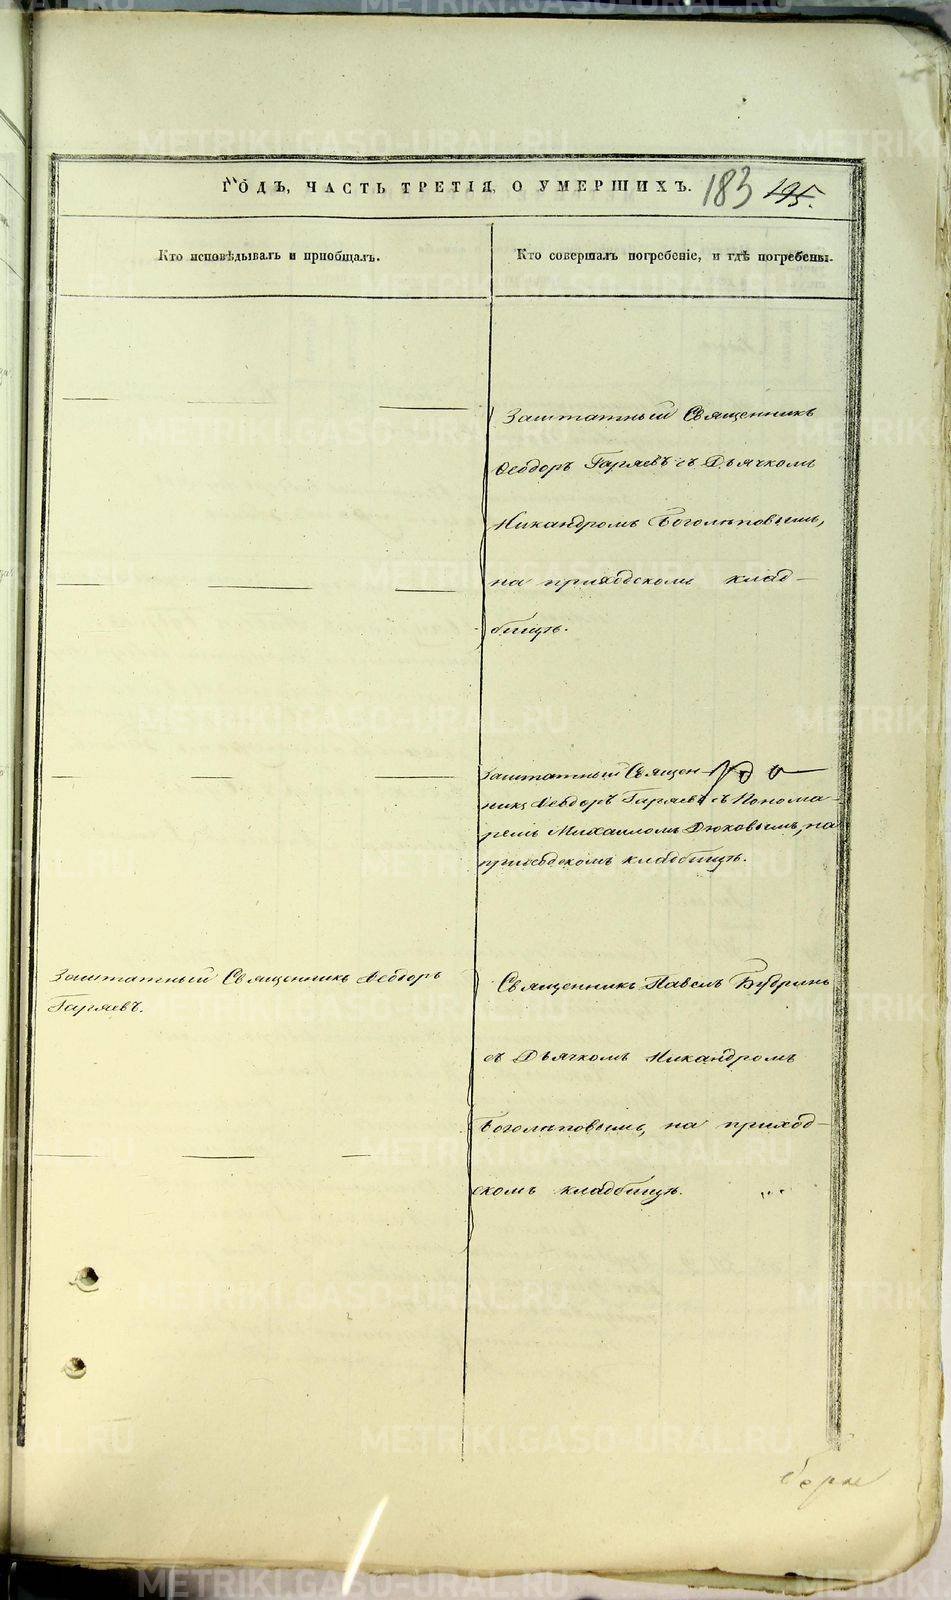 ГОДЪ, ЧАСТЬ ТРЕТІЯ, О УМЕРШИХЪ. 183 195.
Кто исповѣдывалъ и пріобщалъ.
Кто совершалъ погребеніе, и гдѣ погребены.
Заштатный Священникъ
Ѳеодоръ Гаряевъ съ Дьячкомъ
Никандромъ Боголѣповымъ,
на приходскомъ клад-
бищѣ.
Заштатный Священ-
никъ Ѳеодоръ Гаряевъ съ Понома-
ремъ Михаиломъ Дюковымъ, на
приходскомъ кладбищѣ.
Заштатный Священникъ Ѳеодоръ
Гаряевъ.
Священникъ Павелъ Будринъ
съ Дьячкомъ Никандромъ
Боголѣповымъ, на приход-
скомъ кладбищѣ.
METRIKI.GASO-URAL.RU